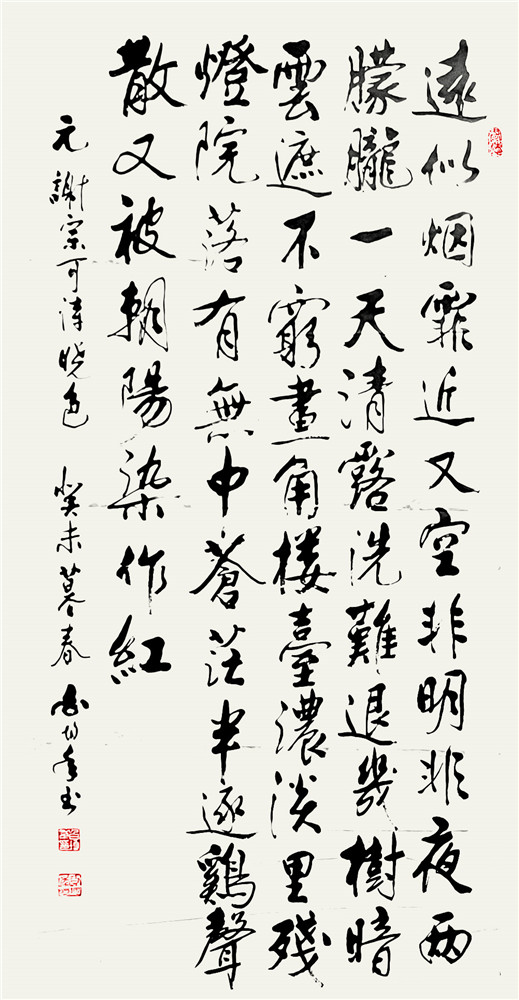 遠似烟霏近又空非明非夜兩
朦朧一天清露洗難退幾樹暗
雲遮不窮畫角樓臺濃淡里殘
燈院落有無中蒼茫半逐鷄聲
散又被朝陽染作紅
元謝宗可詩曉色 癸未暮春 書